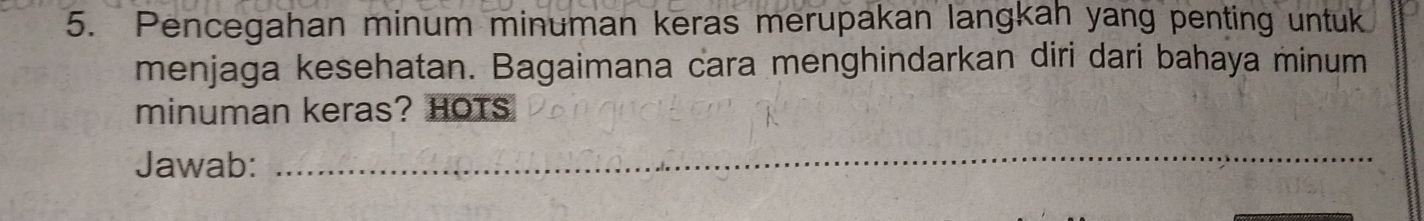 5. Pencegahan minum minuman keras merupakan langkah yang penting untuk
menjaga kesehatan. Bagaimana cara menghindarkan diri dari bahaya minum
minuman keras? HOTS
Jawab: ........................................................................